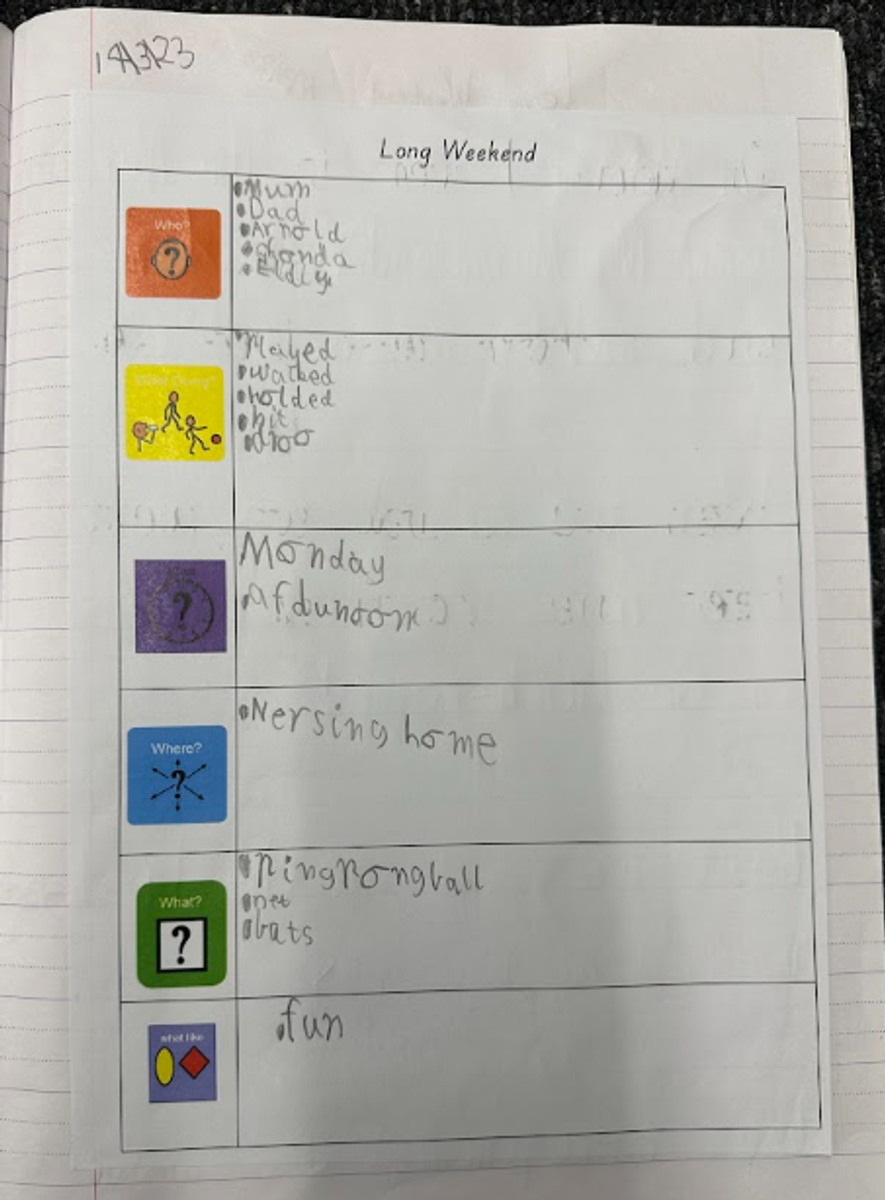 14/3/23
Long Weekend
Who?
•Mum
•Dad
•Arnold
What Doing?
•Played
•walked
•holded
•hit
Monday
•afdunoom
Where?
•Nersing home
What?
•PingPongball
•net
•bats
what like
•fun